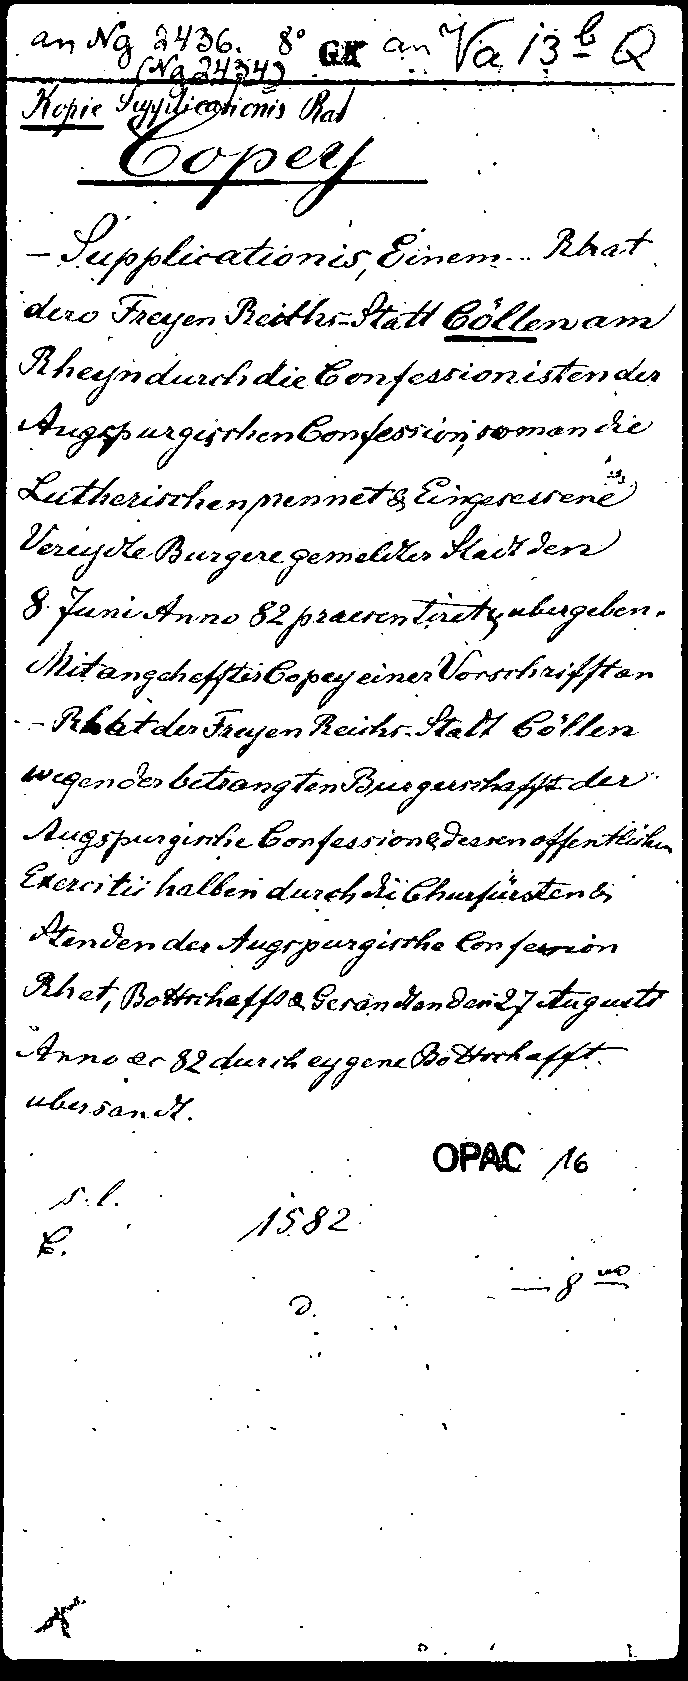 an Ng 2436. 8° GK an Va 13 b Q
(Ng 2434)
Kopie Supplicationis Rat
Copey
– Supplicationis, Einem... Rhat
dero Freyen Reichs-Statt Cöllen am
Rheyn durch die Confessionisten der
Augspurgischen Confession, so man die
Lutherischen nennet & Eingesessene
Vereydte Burgere gemeldter Stadt den
8. Juni Anno 82 praesentiret & ubergeben.
Mit angehefftes Copey einer Vorschrifft an
– Rhat der Freyen Reichs-Stadt Cöllen
wegen der betrangten Burgerschafft der
Augspurgische Confession & dessen offentlichen
Exercitii halben durch die Churfürsten &
Stenden der Augspurgische Confession
Rhet, Bottschafft & Gesandten den 27 Augusti
Anno ec 82 durch eygene Bottschafft
ubersandt.
OPAC 16
s. l.
1582
8 vo